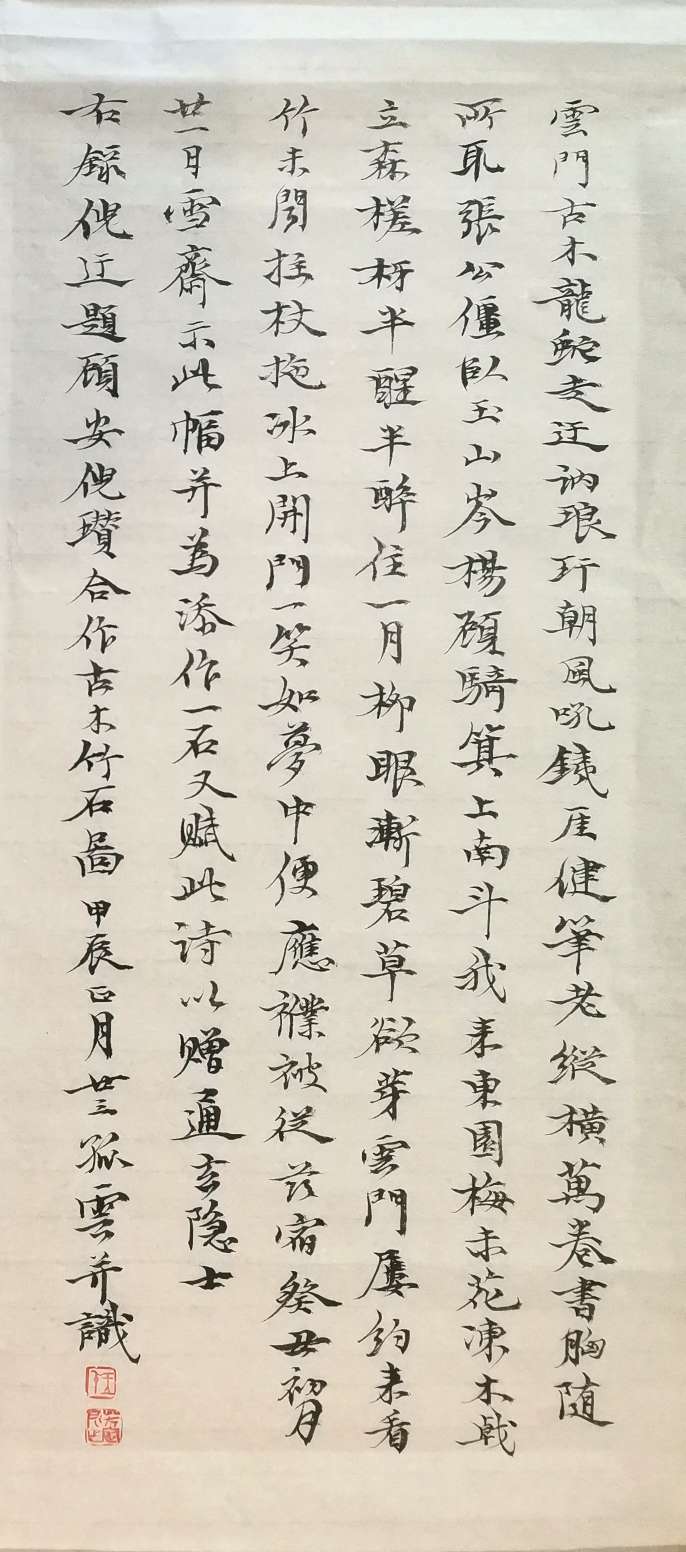 雲門古木龍蛇走迂訥琅玕朝風吼銕厓健筆老縱橫萬卷書胸随
所取張公僵臥玉山岑楊顧騎箕上南斗我来東園梅未花凍木戟
立森槎枒半醒半醉住一月柳眼漸碧草欲芽雲門屢約来看
竹未聞拄杖拖冰上開門一笑如夢中便應襆被從茲宿癸丑初月
廿一日雪齋示此幅并為添作一石又賦此诗以贈通玄隐士
右録倪迂題顧安倪瓚合作古木竹石圖甲辰正月廿三孤雲并識